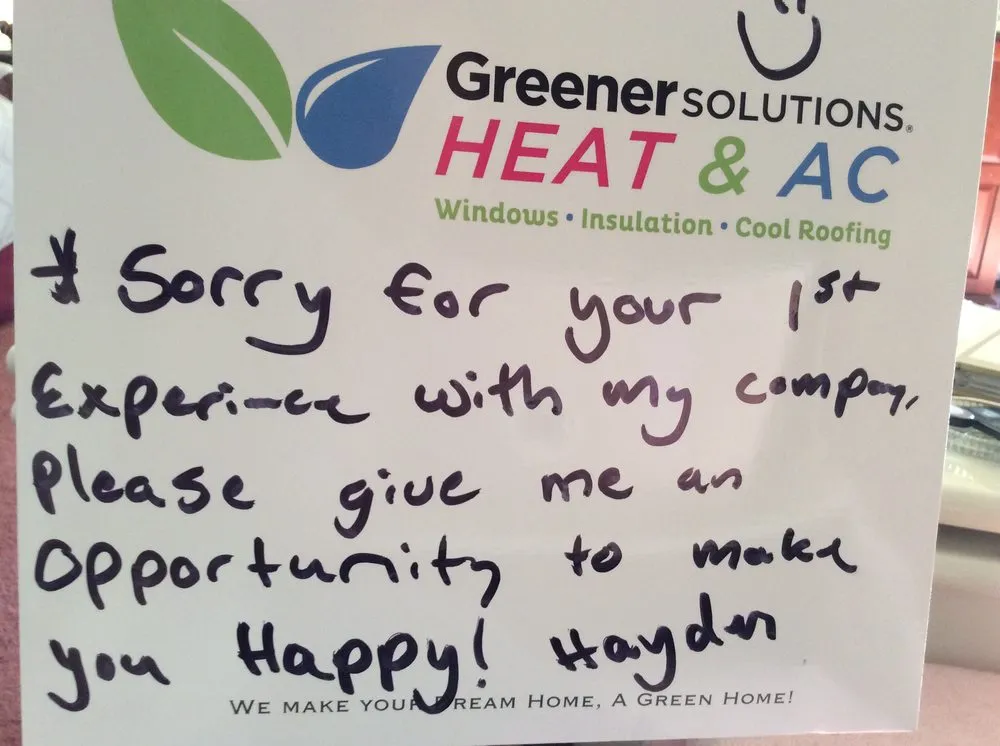 Greener SOLUTIONS®
HEAT & AC
Windows • Insulation • Cool Roofing
* Sorry for your 1st
Experience with my company,
Please give me an
opportunity to make
you Happy! Hayden
WE MAKE YOUR DREAM HOME, A GREEN HOME!